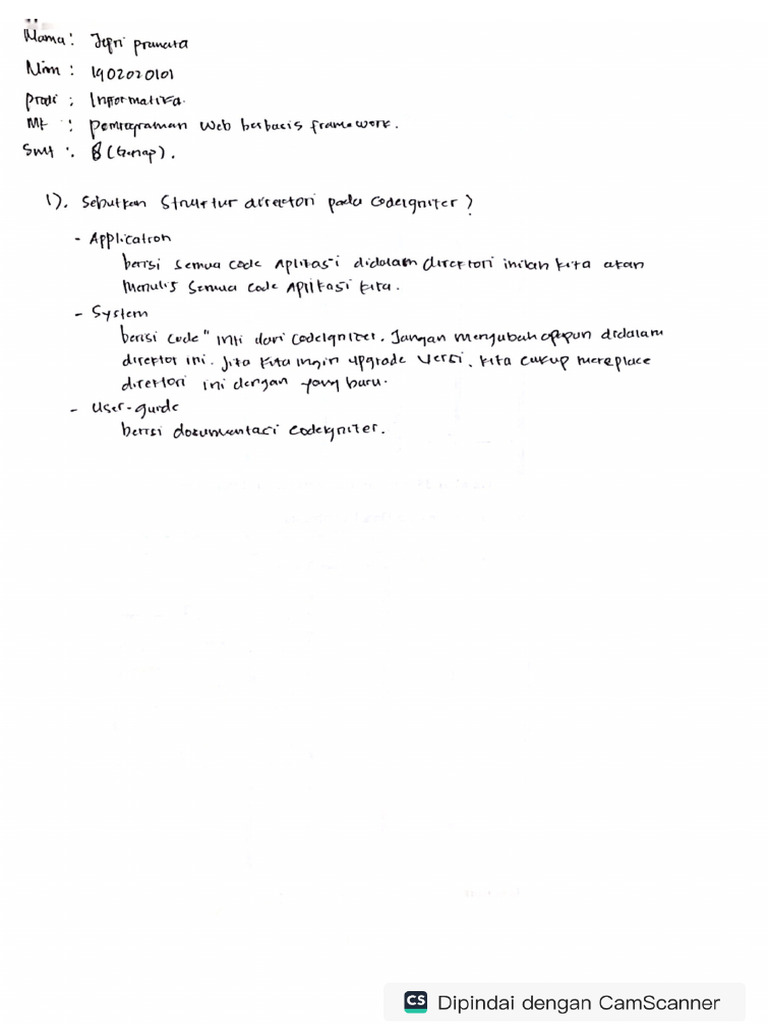 Nama : Jepri pranata
Nim : 1902020101
prodi : Informatika.
Mk : pemrograman Web berbasis framework.
Smt : 8 (Genap).
1). Sebutkan Struktur directori pada Codeigniter ?
- Application
berisi semua code aplikasi didalam direktori inilah kita akan
menulis semua code aplikasi kita.
- System
berisi code" inti dari codeIgniter. Jangan mengubah apapun didalam
direktor ini. Jika kita ingin upgrade versi, kita cukup mereplace
direktori ini dengan yang baru.
- User-guide
berisi dokumentasi codeigniter.
CS Dipindai dengan CamScanner